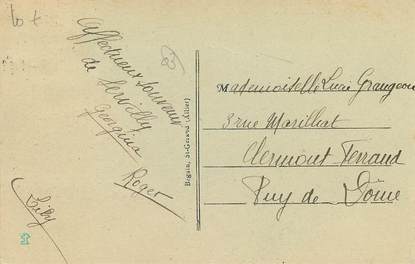 Affectueux souvenir
de Servilly
Georgina
Roger
Lily
Béguin, St-Gerand (Allier)
Mademoiselle Lucie Grangeon
3 rue Marilhat
Clermont Ferrand
Puy de Dôme